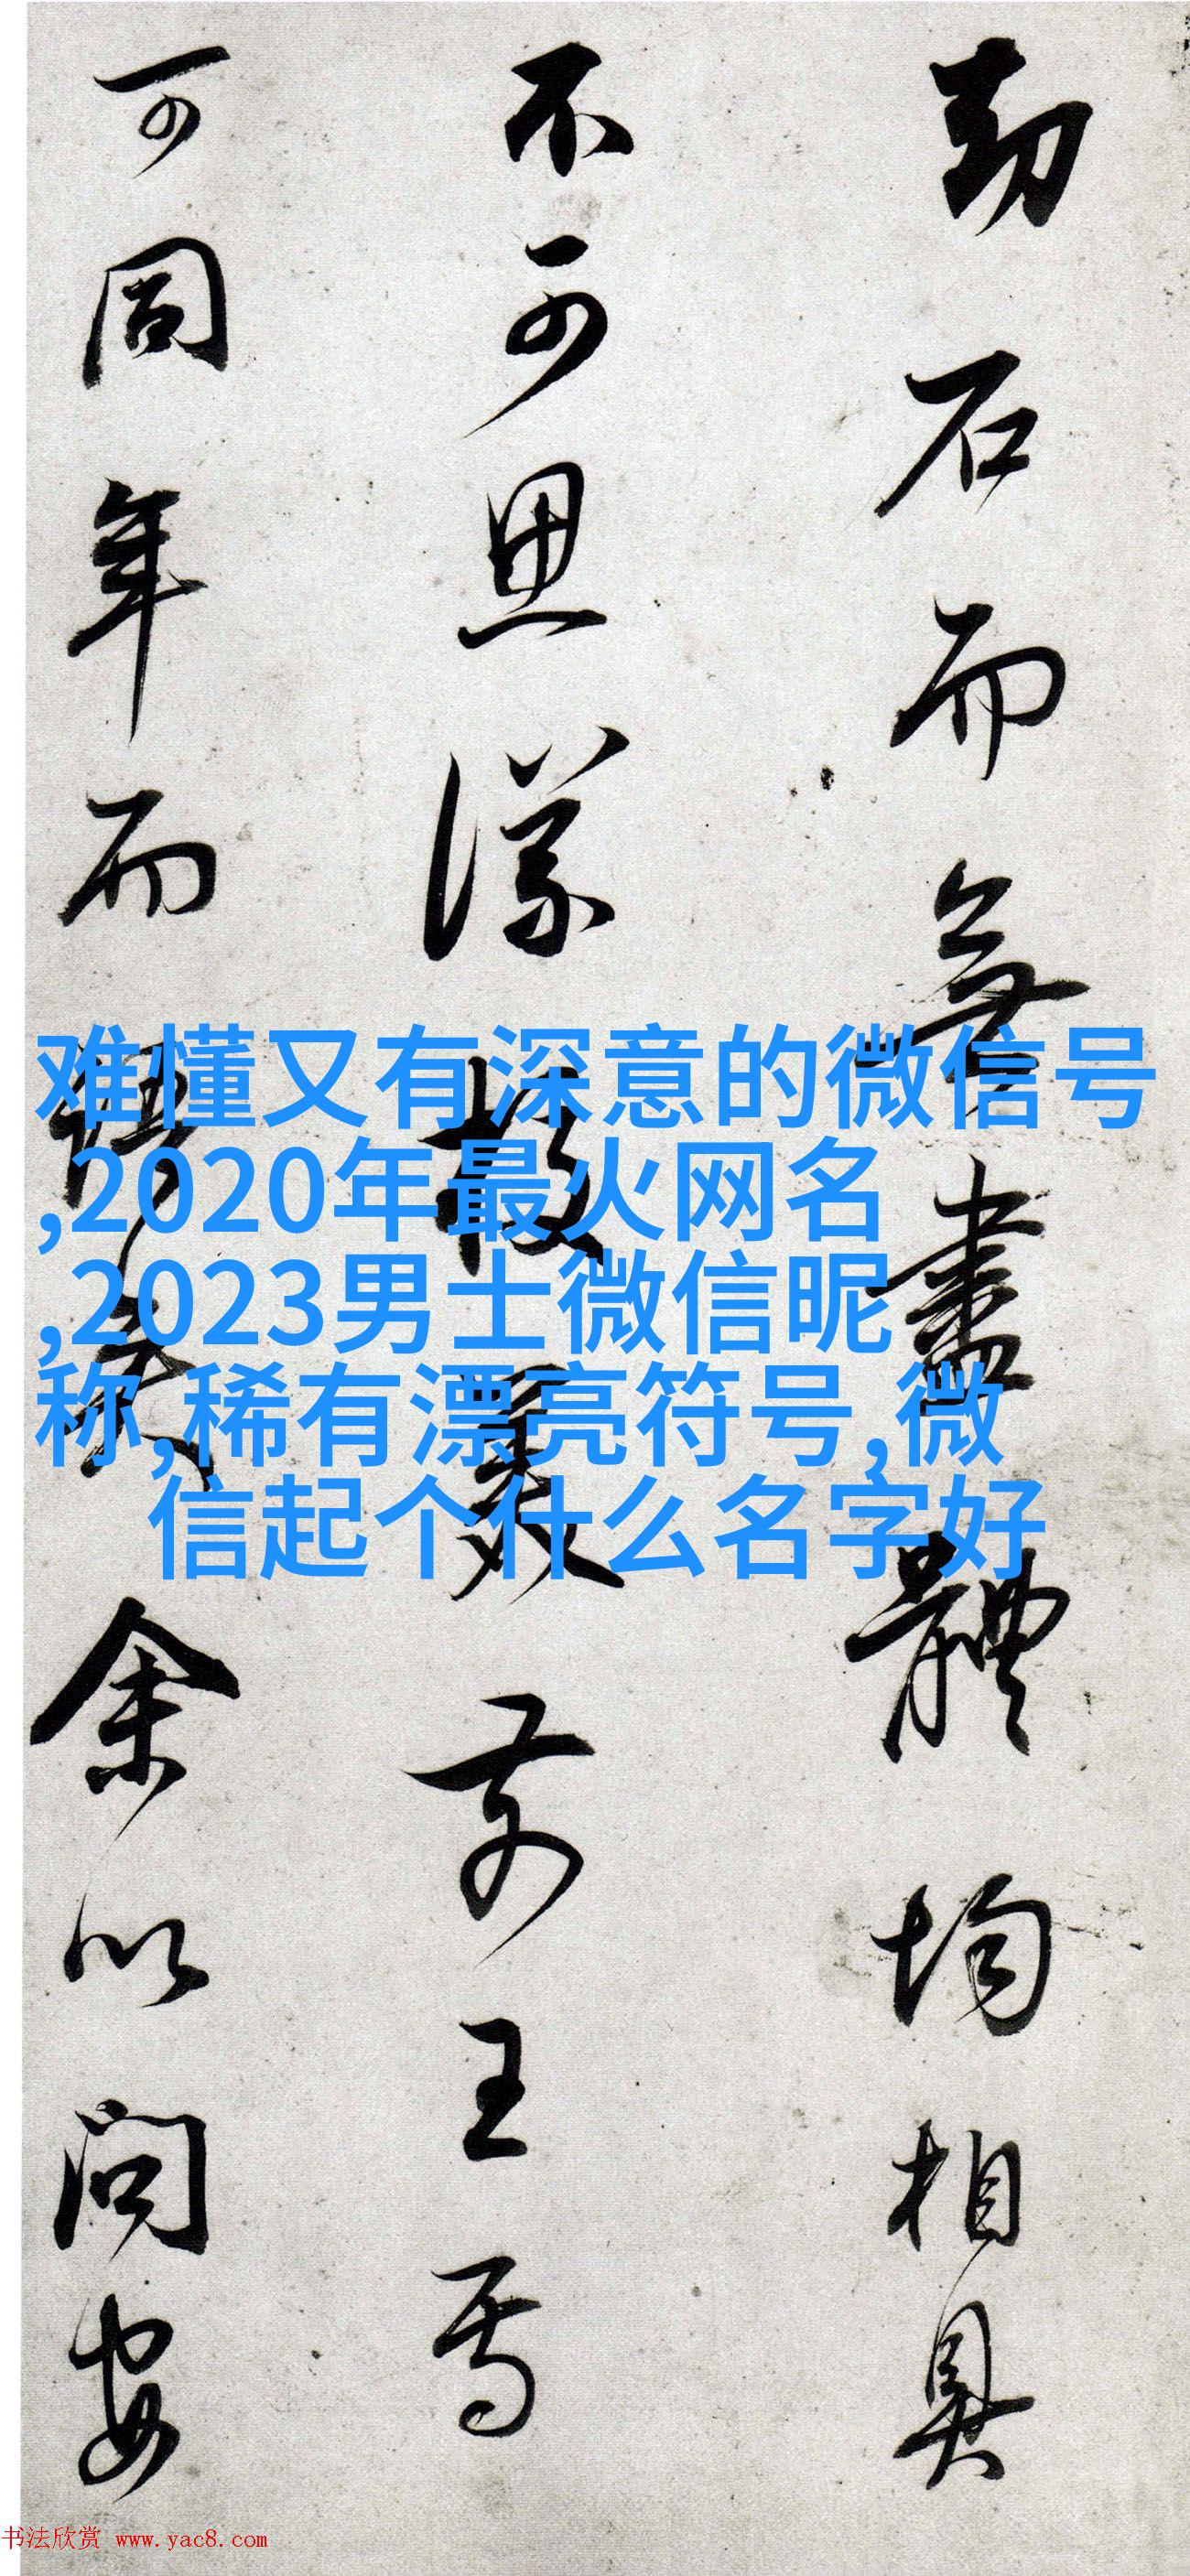 劫石而無盡體均相具
不可思議校美前王焉
可同年而語矣余以問安
难懂又有深意的微信号
,2020年最火网名
,2023男士微信昵
称,稀有漂亮符号,微
信起个什么名字好
书法欣赏 www.yac8.com